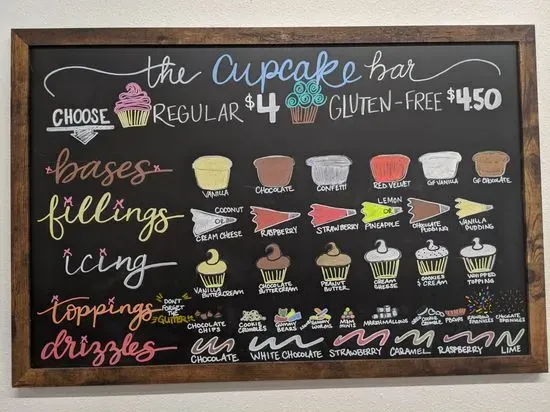 the Cupcake bar
CHOOSE REGULAR $4 GLUTEN-FREE $4.50
bases
VANILLA CHOCOLATE CONFETTI RED VELVET GF VANILLA GF CHOCOLATE
fillings
COCONUT OR CREAM CHEESE RASPBERRY STRAWBERRY LEMON OR PINEAPPLE CHOCOLATE PUDDING VANILLA PUDDING
icing
VANILLA BUTTERCREAM CHOCOLATE BUTTERCREAM PEANUT BUTTER CREAM CHEESE COOKIES & CREAM WHIPPED TOPPING
toppings DON'T FORGET THE GLITTER!
CHOCOLATE CHIPS COOKIE CRUMBLES GUMMY BEARS GUMMY WORMS MINI M&MS MARSHMALLOWS COOKIE CRUMBLE RAINBOW SPRINKLES CHOCOLATE SPRINKLES
drizzles
CHOCOLATE WHITE CHOCOLATE STRAWBERRY CARAMEL RASPBERRY LIME